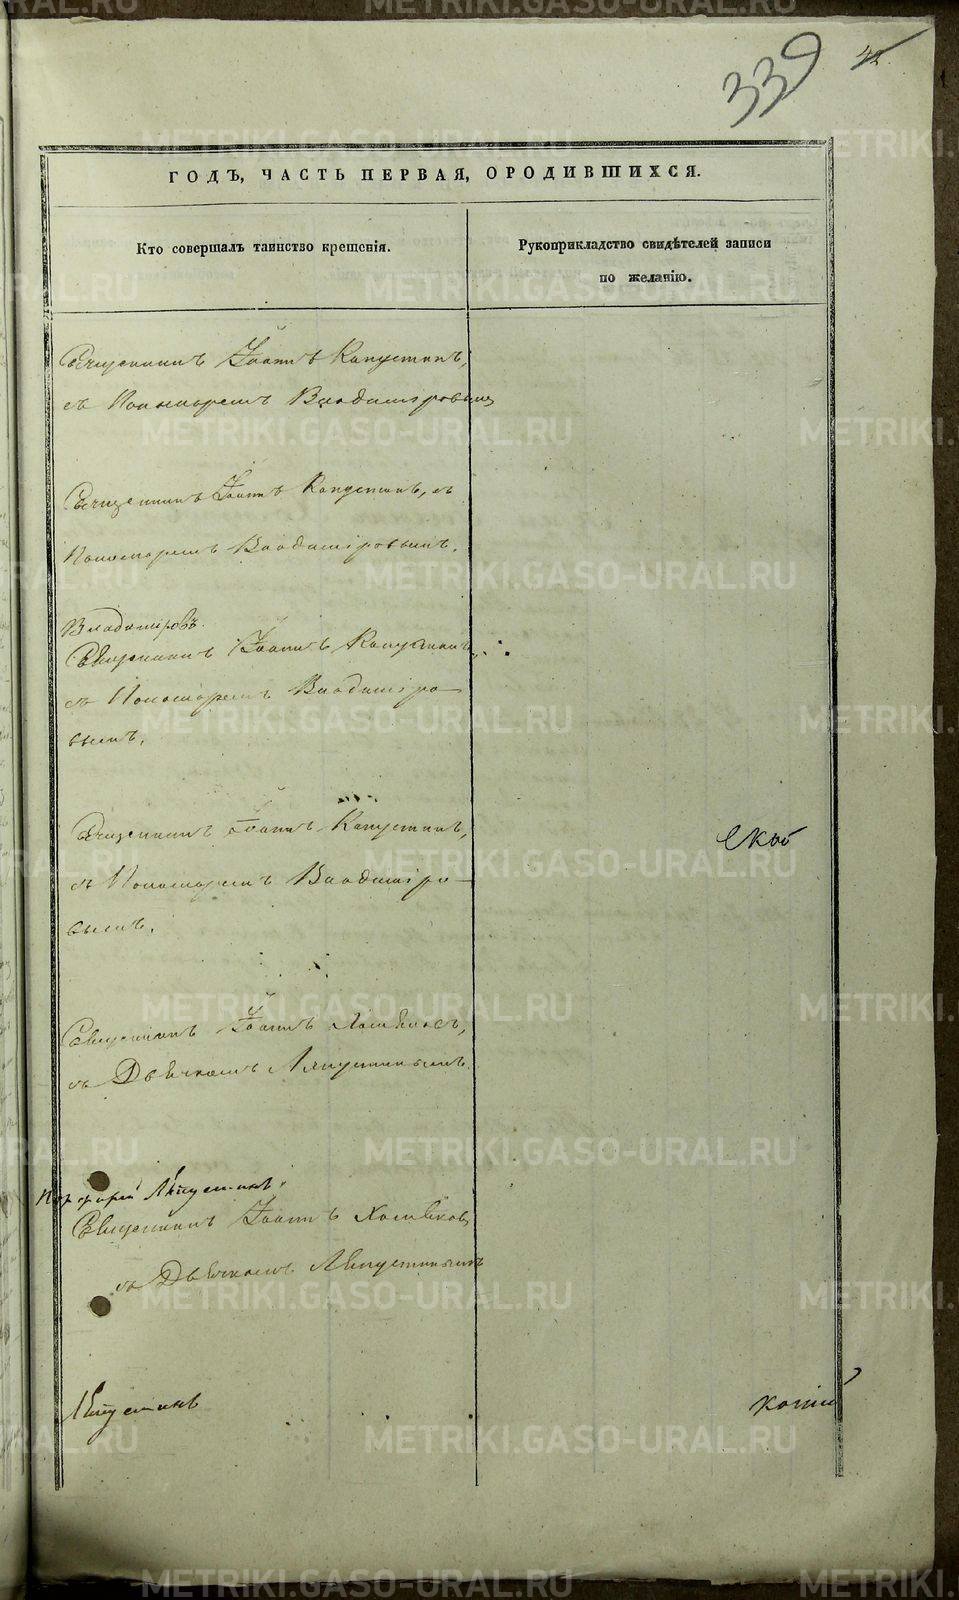 339 42.
ГОДЪ, ЧАСТЬ ПЕРВАЯ, О РОДИВШИХСЯ.
Кто совершалъ таинство крещенія.
Рукоприкладство свидѣтелей записи
по желанію.
Священникъ Іоаннъ Капустинъ,
съ Пономаремъ Владиміровымъ
Священникъ Іоаннъ Капустинъ, съ
Пономаремъ Владиміровымъ.
Владиміровъ.
Священникъ Іоаннъ Капустинъ,
съ Пономаремъ Владиміро-
вымъ.
Священникъ Іоаннъ Капустинъ,
съ Пономаремъ Владиміро-
вымъ.
Священникъ Іоаннъ
съ Дьячкомъ
Порфирій
Священникъ Іоаннъ
съ Дьячкомъ
METRIKI.GASO-URAL.RU